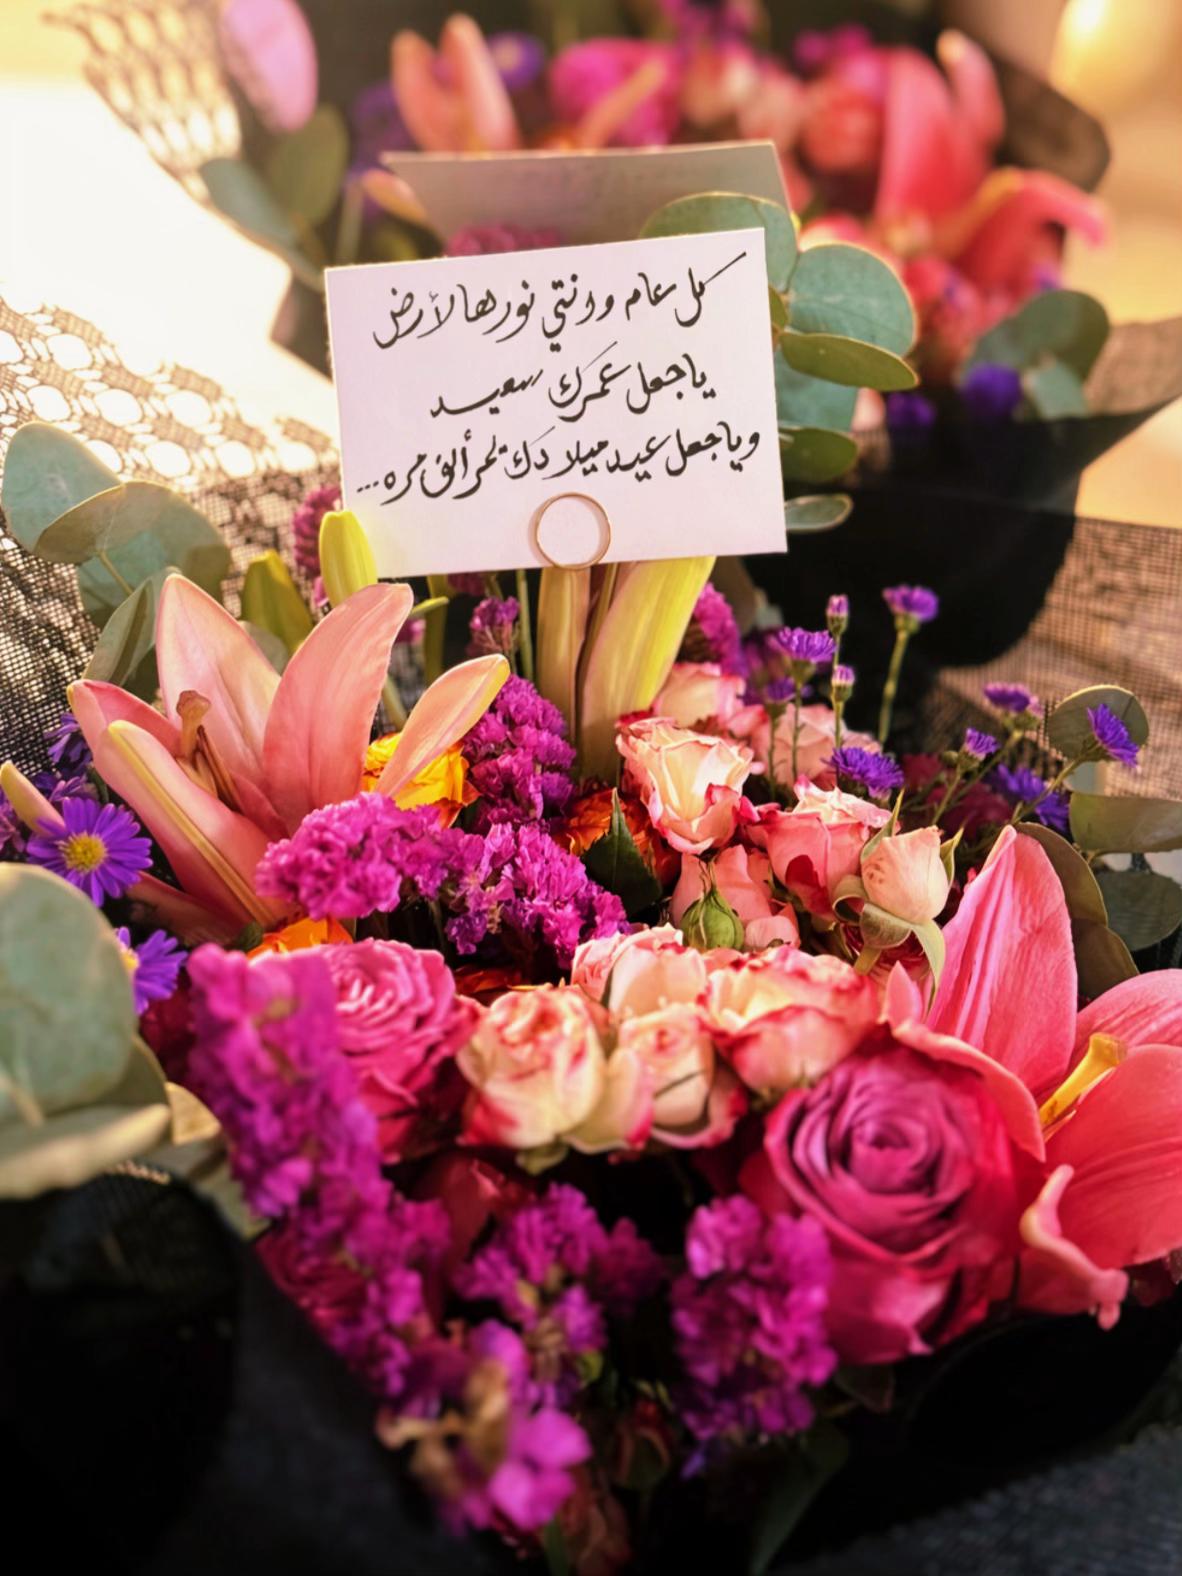 كل عام وانتي نور هالأرض
ياجعل عمرك سعيد
وياجعل عيد ميلادك يمر ألف مره...